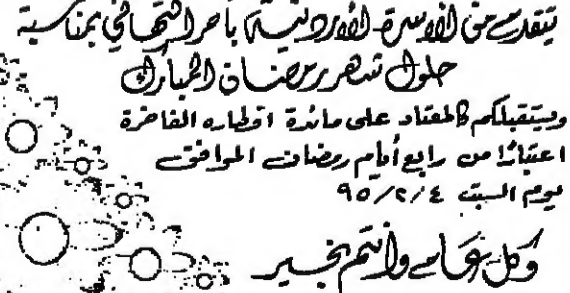 يتقدم من الأسرة الأردنية بأحر التهاني بمناسبة
حلول شهر رمضان المبارك
ويستقبلكم كالمعتاد على مائدة افطاره الفاخرة
اعتبارًا من رابع أيام رمضان الموافق
يوم السبت ٩٥/٢/٤
وكل عام وأنتم بخير